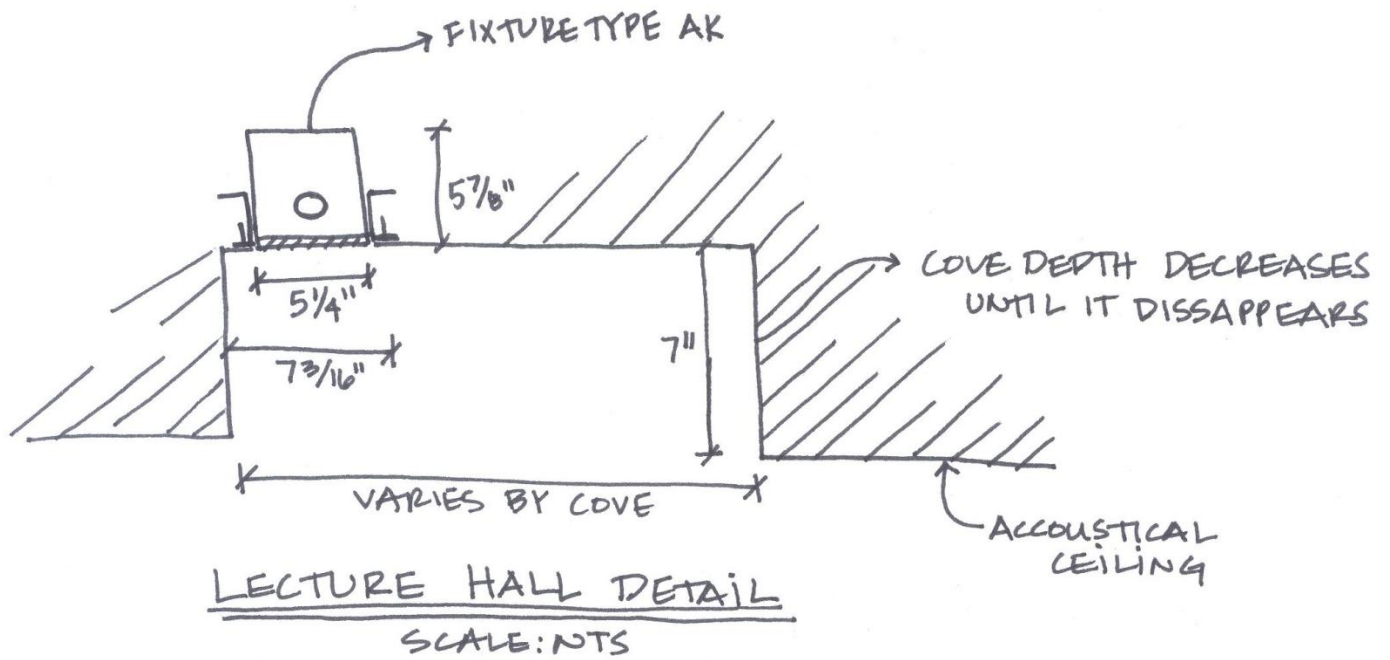 FIXTURE TYPE AK
5⅞"
COVE DEPTH DECREASES
UNTIL IT DISSAPPEARS
5¼"
7 3/16"
7"
VARIES BY COVE
ACCOUSTICAL
CEILING
LECTURE HALL DETAIL
SCALE: NTS